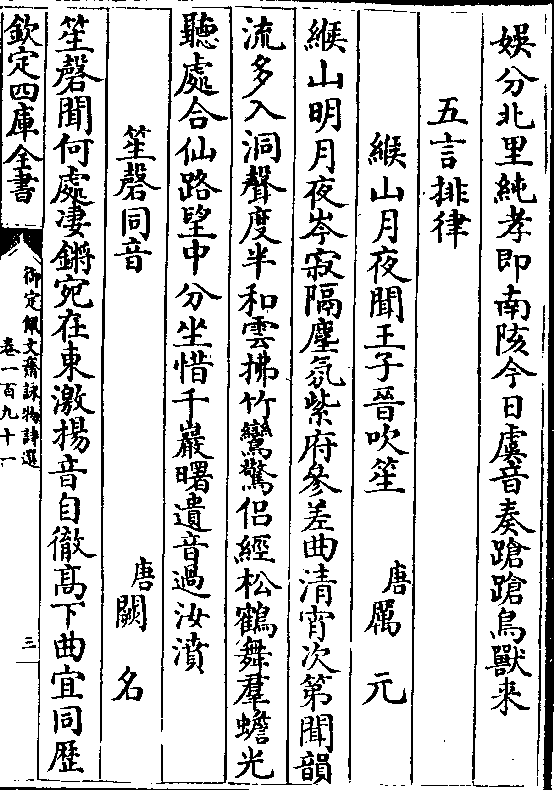 娛分北里純孝即南陔今日虞音奏蹌蹌鳥獸来
五言排律
緱山月夜聞王子晉吹笙　唐厲　元
緱山明月夜岑寂隔塵氛紫府參差曲清宵次第聞韻
流多入洞聲度半和雲拂竹鸞驚侶經松鶴舞羣蟾光
聽處合仙路望中分坐惜千巖曙遺音過汝濆
笙磬同音　唐闕　名
笙磬聞何處淒鏘宛在東激揚音自徹髙下曲宜同歴
欽定四庫全書
御定佩文齋詠物詩選
卷一百九十一
三